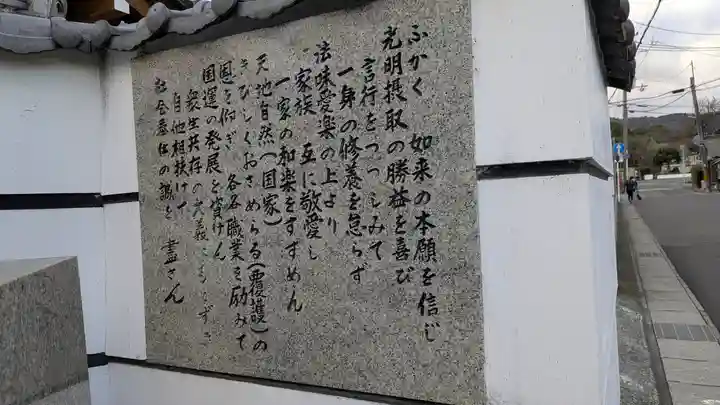 ふかく 如来の本願を信じ
光明摂取の勝益を喜び
言行をつつしみて
一身の修養を怠らず
法味愛楽の上より
家族 互に敬愛し
一家の和楽をすすめん
天地自然(国家)
きびしくおさめらる(覆護)の
恩を仰ぎ 各各職業を励みて
国運の発展を資けん
衆生共存の大義にもとづき
自他相扶けて
社会奉仕の誠を 盡さん